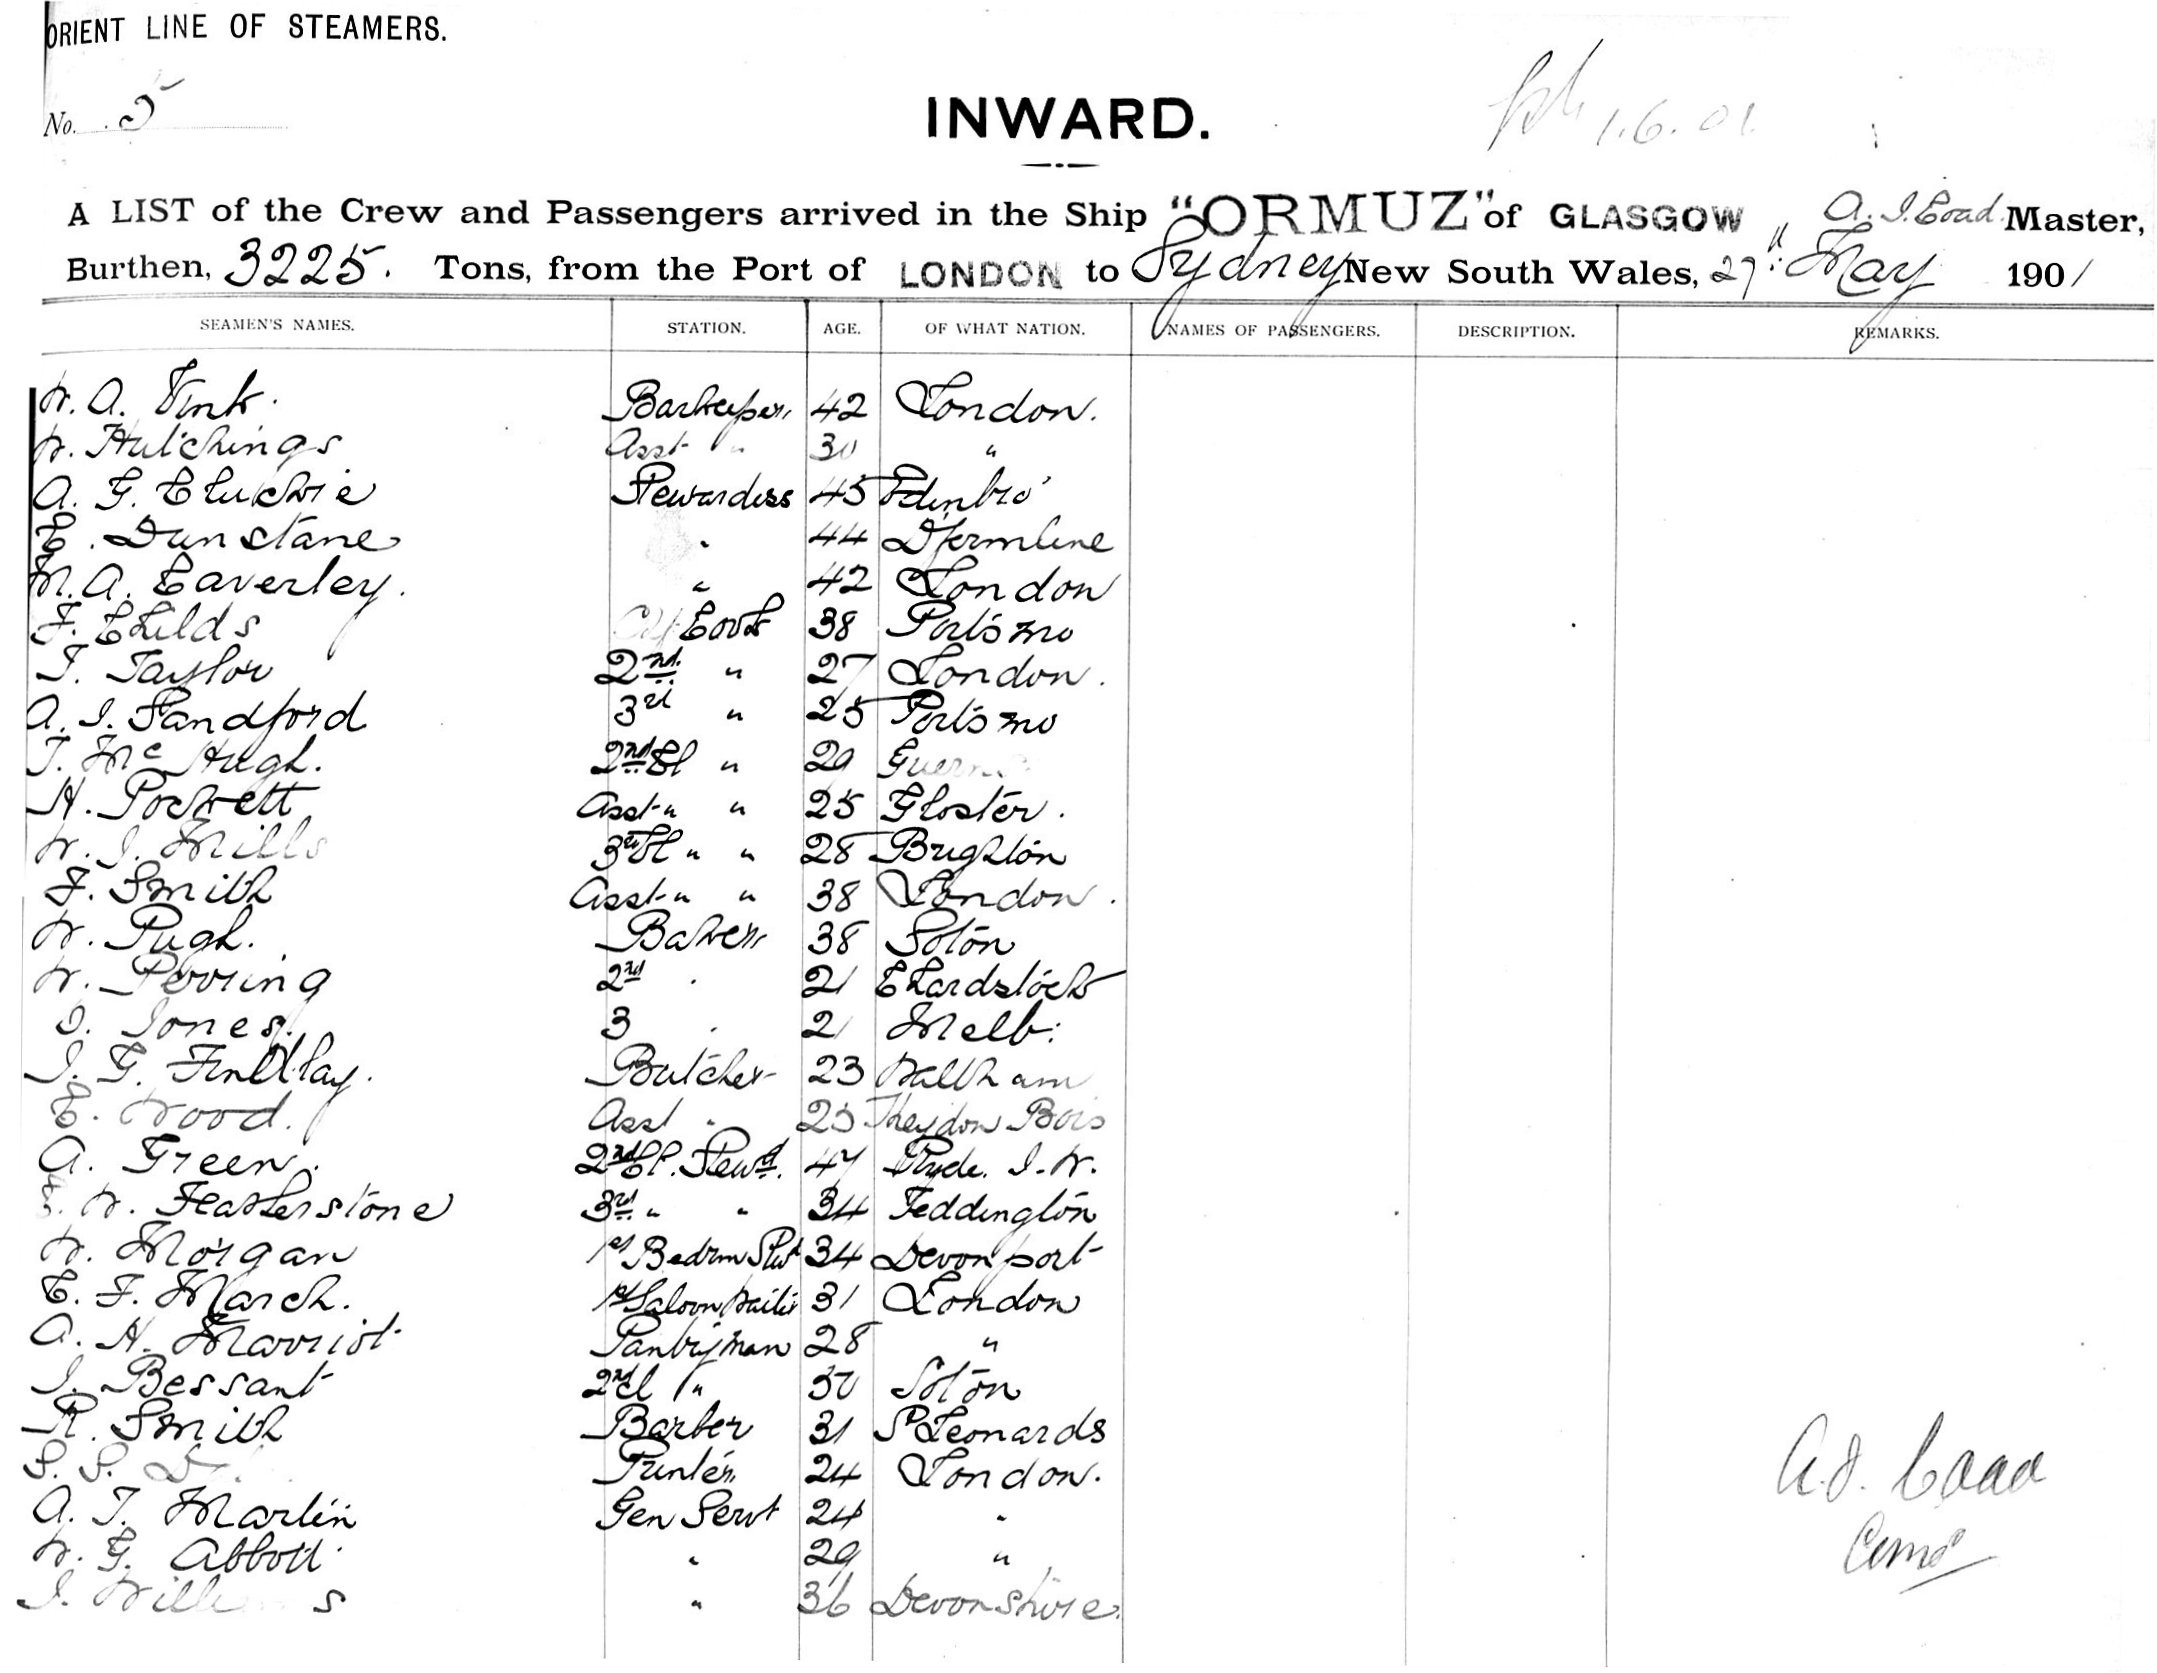 ORIENT LINE OF STEAMERS.
No. 5
INWARD.
1.6.01.
A LIST of the Crew and Passengers arrived in the Ship "ORMUZ" of GLASGOW A. J. Coad Master,
Burthen, 3225. Tons, from the Port of LONDON to Sydney New South Wales, 27th May 1901
SEAMEN'S NAMES. STATION. AGE. OF WHAT NATION. NAMES OF PASSENGERS. DESCRIPTION. REMARKS.
W. A. Vink. Barkeeper 42 London.
W. Hutchings Asst " 30 "
A. G. Stewardess 45 Edinbro'
E. Dunstane " 44 D'fermline
M. A. Caverley. " 42 London
F. Childs Cook 38 Portsmo
T. Taylor 2nd " 27 London.
A. J. Sandford 3rd " 25 Portsmo
T. McHugh. 2nd Cl " 29
H. Pockett Asst " " 25 Gloster.
W. J. Mills 3rd Cl " " 28 Brighton
F. Smith Asst " " 38 London.
W. Pugh. Baker 38 Soton
W. Perring 2nd " 21 Chardstock
Jones. 3 " 21 Melb:
J. G. Findlay. Butcher 23 Waltham
E. Wood. Asst " 25 Theydon Bois
A. Green. 2nd Cl. Stewd. 47 Ryde. I. W.
W. Featherstone 3rd " " 34 Teddington
W. Morgan 1st Bedrm Stwd 34 Devonport
C. F. March. 1st Saloon Waiter 31 London
A. H. Marriot Pantryman 28 "
J. Bessant 2nd Cl " 30 Soton
R. Smith Barber 31 St Leonards
S. S. Printer 24 London.
A. T. Martin Gen Servt 24 "
W. G. Abbott " 29 "
J. " 36 Devonshire.
A. J. Coad